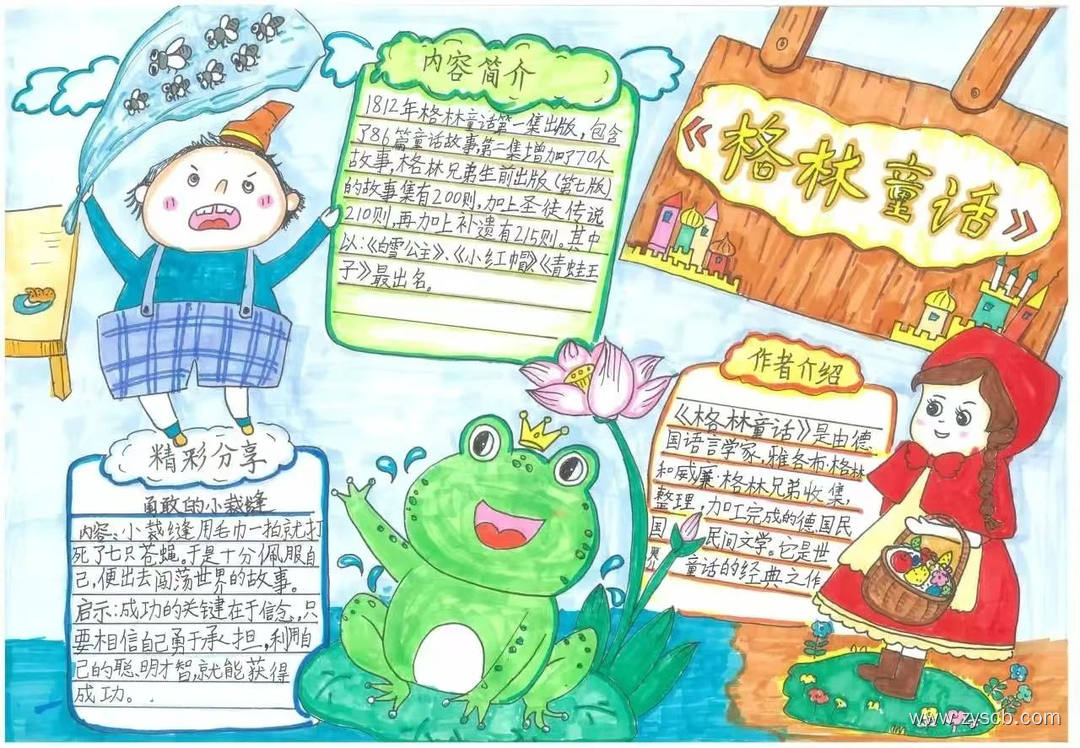 《格林童话》
内容简介
1812年格林童话第一集出版，包含
了86篇童话故事,第二集增加了70个
故事,格林兄弟生前出版(第七版)
的故事集有200则,加上圣徒传说
210则,再加上补遗有215则。其中
以：《白雪公主》、《小红帽》《青蛙王
子》最出名。
作者介绍
《格林童话》是由德
国语言学家,雅各布·格林
和威廉·格林兄弟收集,
整理,加工完成的德国民
国 民间文学。它是世
界 童话的经典之作
精彩分享
勇敢的小裁缝
内容：小裁缝用毛巾一拍就打
死了七只苍蝇。于是十分佩服自
己,便出去闯荡世界的故事。
启示：成功的关键在于信念,只
要相信自己勇于承担,利用自
己的聪明才智,就能获得
成功。
www.zyscb.com